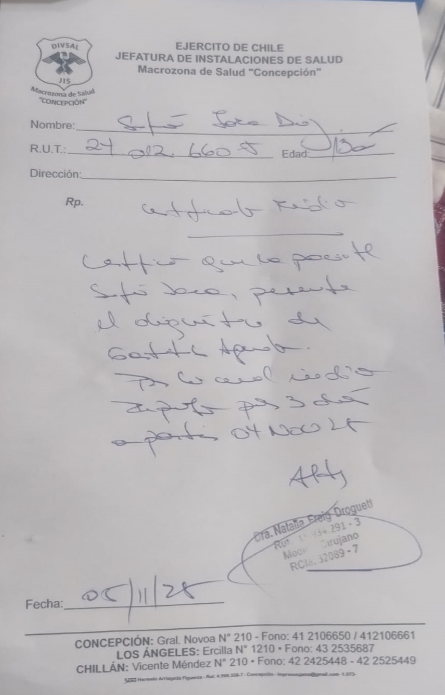 DIVSAL
JIS
Macrozona de Salud
"CONCEPCIÓN"
EJERCITO DE CHILE
JEFATURA DE INSTALACIONES DE SALUD
Macrozona de Salud "Concepción"
Nombre: Sofía Jara
R.U.T.: 24 012 660-5 Edad:
Dirección:
Rp.
Certificado Médico
Certifico que la paciente
Sofía Jara, presenta
el diagnóstico de
Gastritis Aguda.
Por lo cual indico
reposo por 3 días
a partir 04 Nov 25
Dra. Natalia Freig Droguett
Rut.
Médico Cirujano
RCM. 37089 - 7
Fecha: 05/11/25
CONCEPCIÓN: Gral. Novoa N° 210 - Fono: 41 2106650 / 412106661
LOS ÁNGELES: Ercilla N° 1210 • Fono: 43 2535687
CHILLÁN: Vicente Méndez N° 210 - Fono: 42 2425448 - 42 2525449